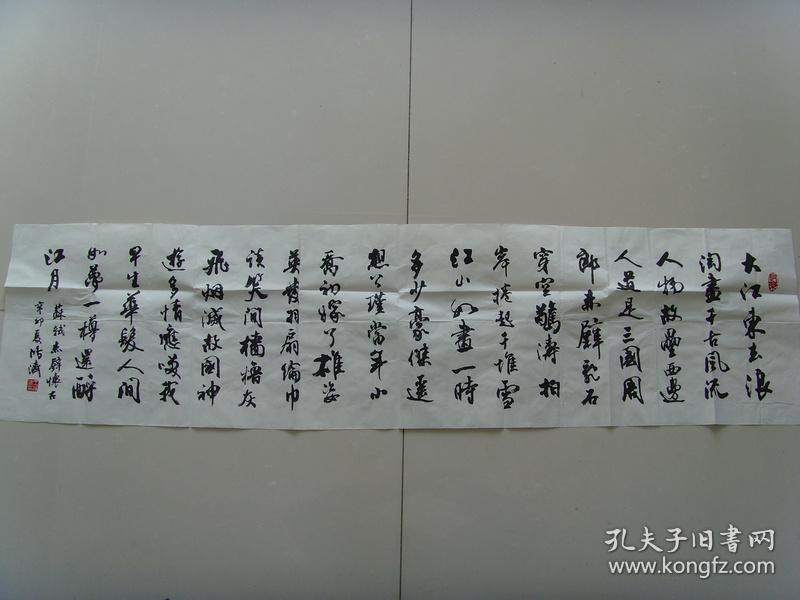 大江東去浪
淘盡千古風流
人物故壘西邊
人道是三國周
郎赤壁亂石
穿空驚濤拍
岸捲起千堆雪
江山如畫一時
多少豪傑遙
想公瑾當年小
喬初嫁了雄姿
英發羽扇綸巾
談笑間檣櫓灰
飛烟滅故國神
遊多情應笑我
早生華髮人間
如夢一樽還酹
江月
蘇軾赤壁懷古
辛卯夏
孔夫子旧书网
www.kongfz.com